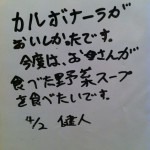 カルボナーラが
おいしかったです。
今度は、お母さんが
食べた野菜スープ
を食べたいです。
4/2 健人